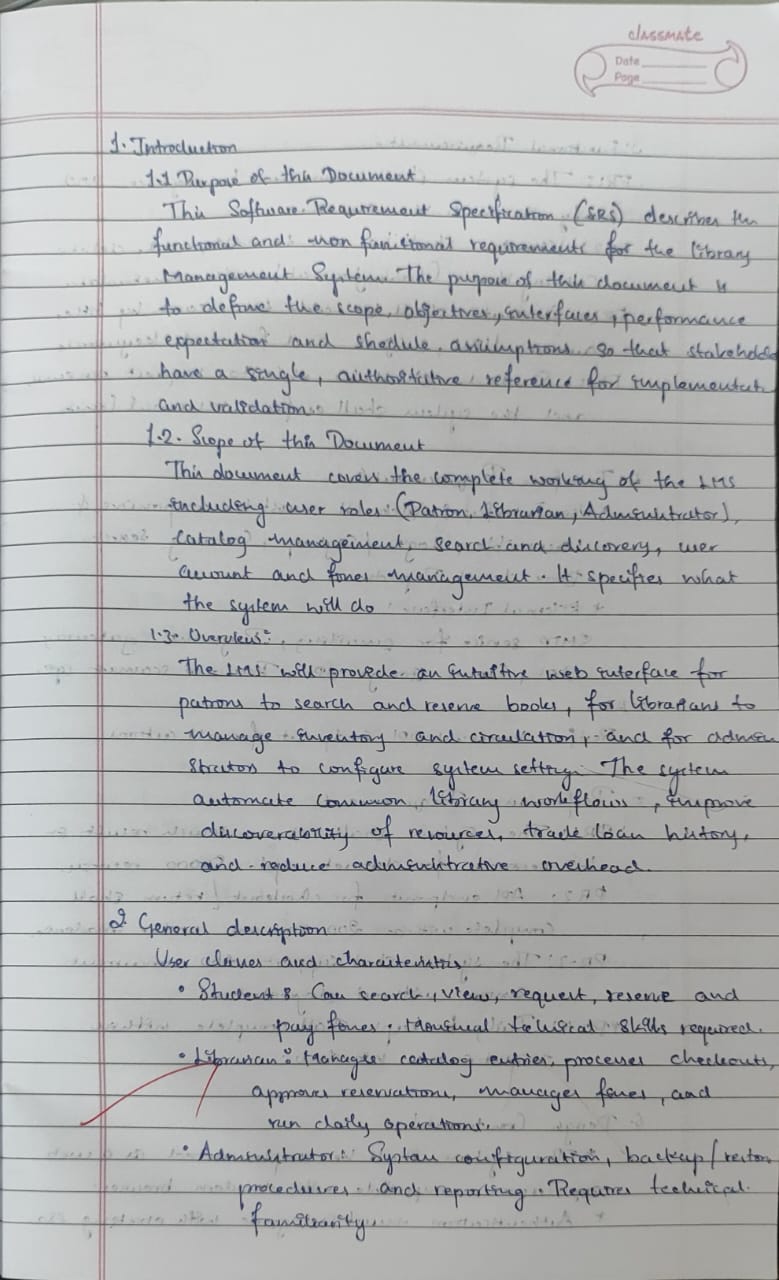 classmate
Date
Page
1. Introduction
1.1 Purpose of this Document
This Software Requirement Specification (SRS) describes the
functional and non functional requirements for the library
Management System. The purpose of this document is
to define the scope, objectives, interfaces, performance
expectation and shedule, assumptions so that stakeholde
have a single, authoritative reference for implementat
and validation.
1.2. Scope of this Document
This document covers the complete working of the LMS
including user roles (Patron, Librarian, Administrator),
Catalog management, search and discovery, user
account and fines management. It specifies what
the system will do
1.3. Overview:
The LMS will provide an intuitive web interface for
patrons to search and reserve books, for librarians to
manage inventory and circulation, and for admin
strators to configure system setting. The system
automate common library workflows, improve
discoverability of resources, track loan history,
and reduce administrative overhead.
2 General description
User classes and characteristics
• Student: Can search, view, request, reserve and
pay fines. technical skills required.
• Librarian: Manages catalog entries, processes checkouts,
approves reservations, manages fines, and
run daily operations.
• Administrator: System configuration, backup/restore
procedures and reporting. Requires technical
familiarity.